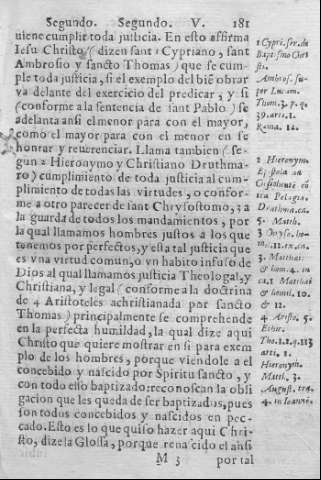 Segundo. Segundo. V. 181
uiene cumplir toda justicia. En esto affirma
Iesu Christo (dizen sant 1 Cypriano, sant
Ambrosio y sancto Thomas) que se cum-
ple toda justicia, si el exemplo del biē obrar
va delante del exercicio del predicar, y si
(conforme a la sentencia de sant Pablo) se
adelanta ansi el menor para con el mayor,
como el mayor para con el menor en se
honrar y reuerenciar. Llama tambien (se-
gun 2 Hieronymo y Christiano Druthma-
ro) cumplimiento de toda justicia al cum-
plimiento de todas las virtudes, o confor-
me a otro parecer de sant Chrysostomo, 3 a
la guarda de todos los mandamientos, por
la qual llamamos hombres justos a los que
tenemos por perfectos, y esta tal justicia que
es vna virtud comun, o vn habito infuso de
Dios al qual llamamos justicia Theologal, y
Christiana, y legal (conforme a la doctrina
de 4 Aristoteles achristianada por sancto
Thomas) principalmente se comprehende
en la perfecta humildad, la qual dize aqui
Christo que quiere mostrar en si para exem
plo de los hombres, porque viendole a el
concebido y nascido por Spiritu sancto, y
con todo esso baptizado: reconoscan la obli
gacion que les queda de ser baptizados, pues
son todos concebidos y nascidos en pec-
cado. Esto es lo que quiso hazer aqui Chri-
sto, dize la Glossa, porque renascido el ansi
M 3 por tal
1 Cypri. ser. de
Baptismo Chri
sti.
Ambros. su-
per Lucam.
Thom. 3. p. q.
39. arti. 1.
Roma. 12.
2 Hieronym.
Epistola an
Pelagia.
Druthma. ca.
3 Chryso. ho-
Matthai
& hom. 4. in
ca. 1 Matthai
& homil. 10.
& 12.
4 Aristo. 5.
Ethic.
Tho. 1. 2. q. 113
arti. 1.
Hieronym.
Matth. 3.
August. tra.
4. in Ioannē.